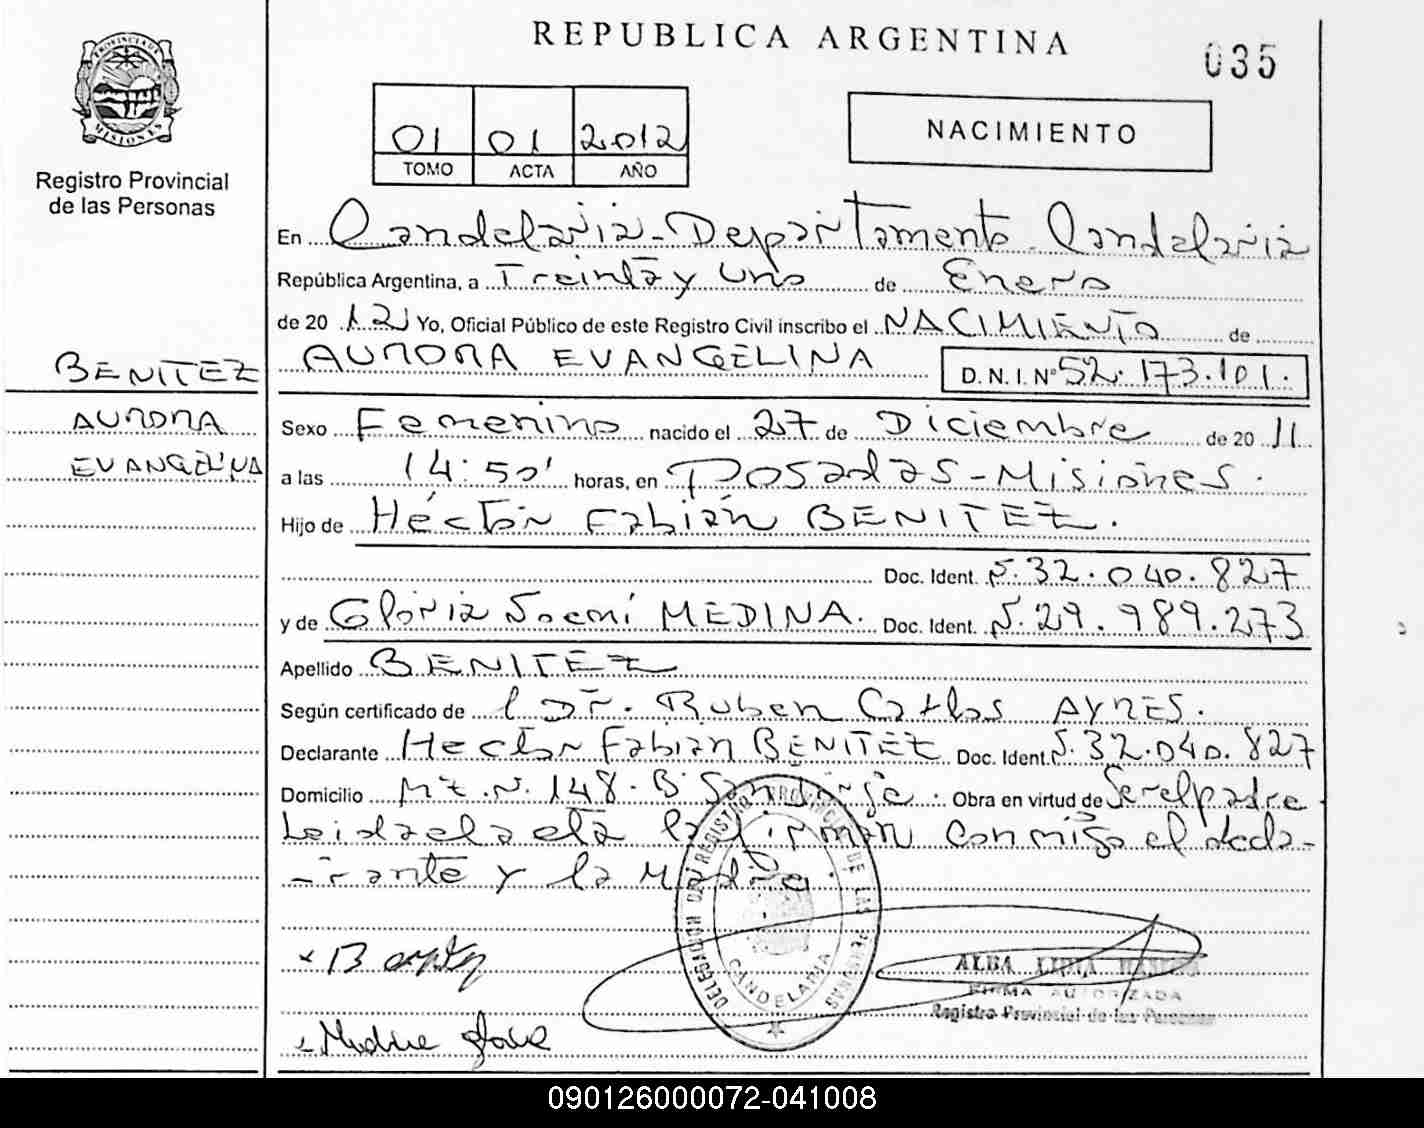 REPUBLICA ARGENTINA
035
PROVINCIA DE
MISIONES
Registro Provincial
de las Personas
01 01 2012
TOMO ACTA AÑO
NACIMIENTO
En Candelaria - Departamento Candelaria
República Argentina, a Treinta y uno de Enero
de 20 12 Yo, Oficial Público de este Registro Civil inscribo el NACIMIENTO de
BENITEZ
AURORA EVANGELINA D.N.I. Nº 52.173.101.
AURORA
EVANGELINA
Sexo Femenino nacido el 27 de Diciembre de 20 11
a las 14:50' horas, en Posadas - Misiones.
Hijo de Héctor Fabián BENITEZ.
Doc. Ident. N. 32.040.827
y de Gloria Noemí MEDINA. Doc. Ident. N. 29.989.273
Apellido BENITEZ
Según certificado de l Dr. Ruben Carlos AYRES.
Declarante Hector Fabián BENITEZ Doc. Ident. N. 32.040.827
Domicilio Mz. N. 148. Bº San Jorge. Obra en virtud de Ser el padre
Leida el acta la firman conmigo el decla-
rante y la Madre.
DELEGACION DEL REGISTRO PROVINCIAL DE LAS PERSONAS
CANDELARIA
ALBA LIDIA
FIRMA AUTORIZADA
Registro Provincial de las Personas
Madre
090126000072-041008